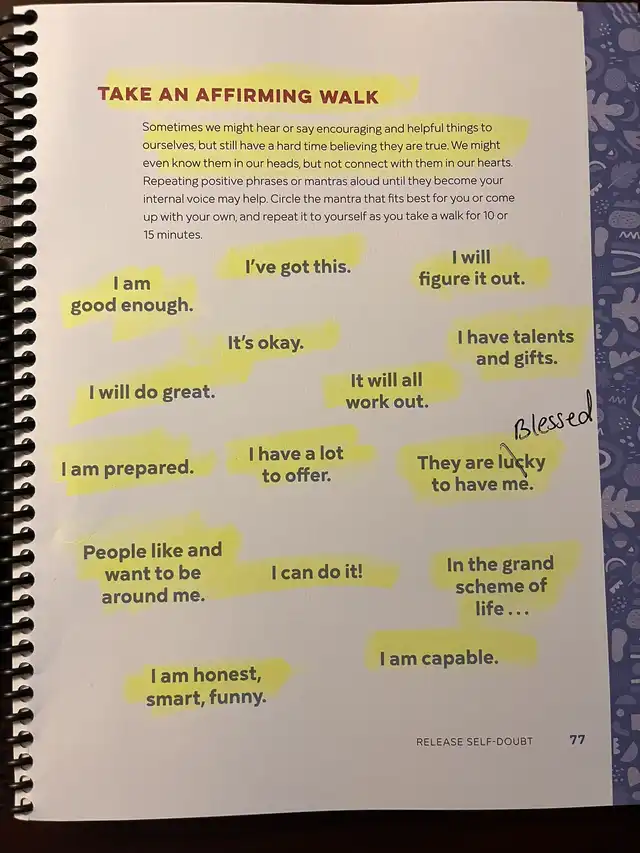 TAKE AN AFFIRMING WALK
Sometimes we might hear or say encouraging and helpful things to
ourselves, but still have a hard time believing they are true. We might
even know them in our heads, but not connect with them in our hearts.
Repeating positive phrases or mantras aloud until they become your
internal voice may help. Circle the mantra that fits best for you or come
up with your own, and repeat it to yourself as you take a walk for 10 or
15 minutes.
I am
good enough.
I've got this.
I will
figure it out.
It's okay.
I have talents
and gifts.
I will do great.
It will all
work out.
Blessed
I am prepared.
I have a lot
to offer.
They are lucky
to have me.
People like and
want to be
around me.
I can do it!
In the grand
scheme of
life ...
I am honest,
smart, funny.
I am capable.
RELEASE SELF-DOUBT 77